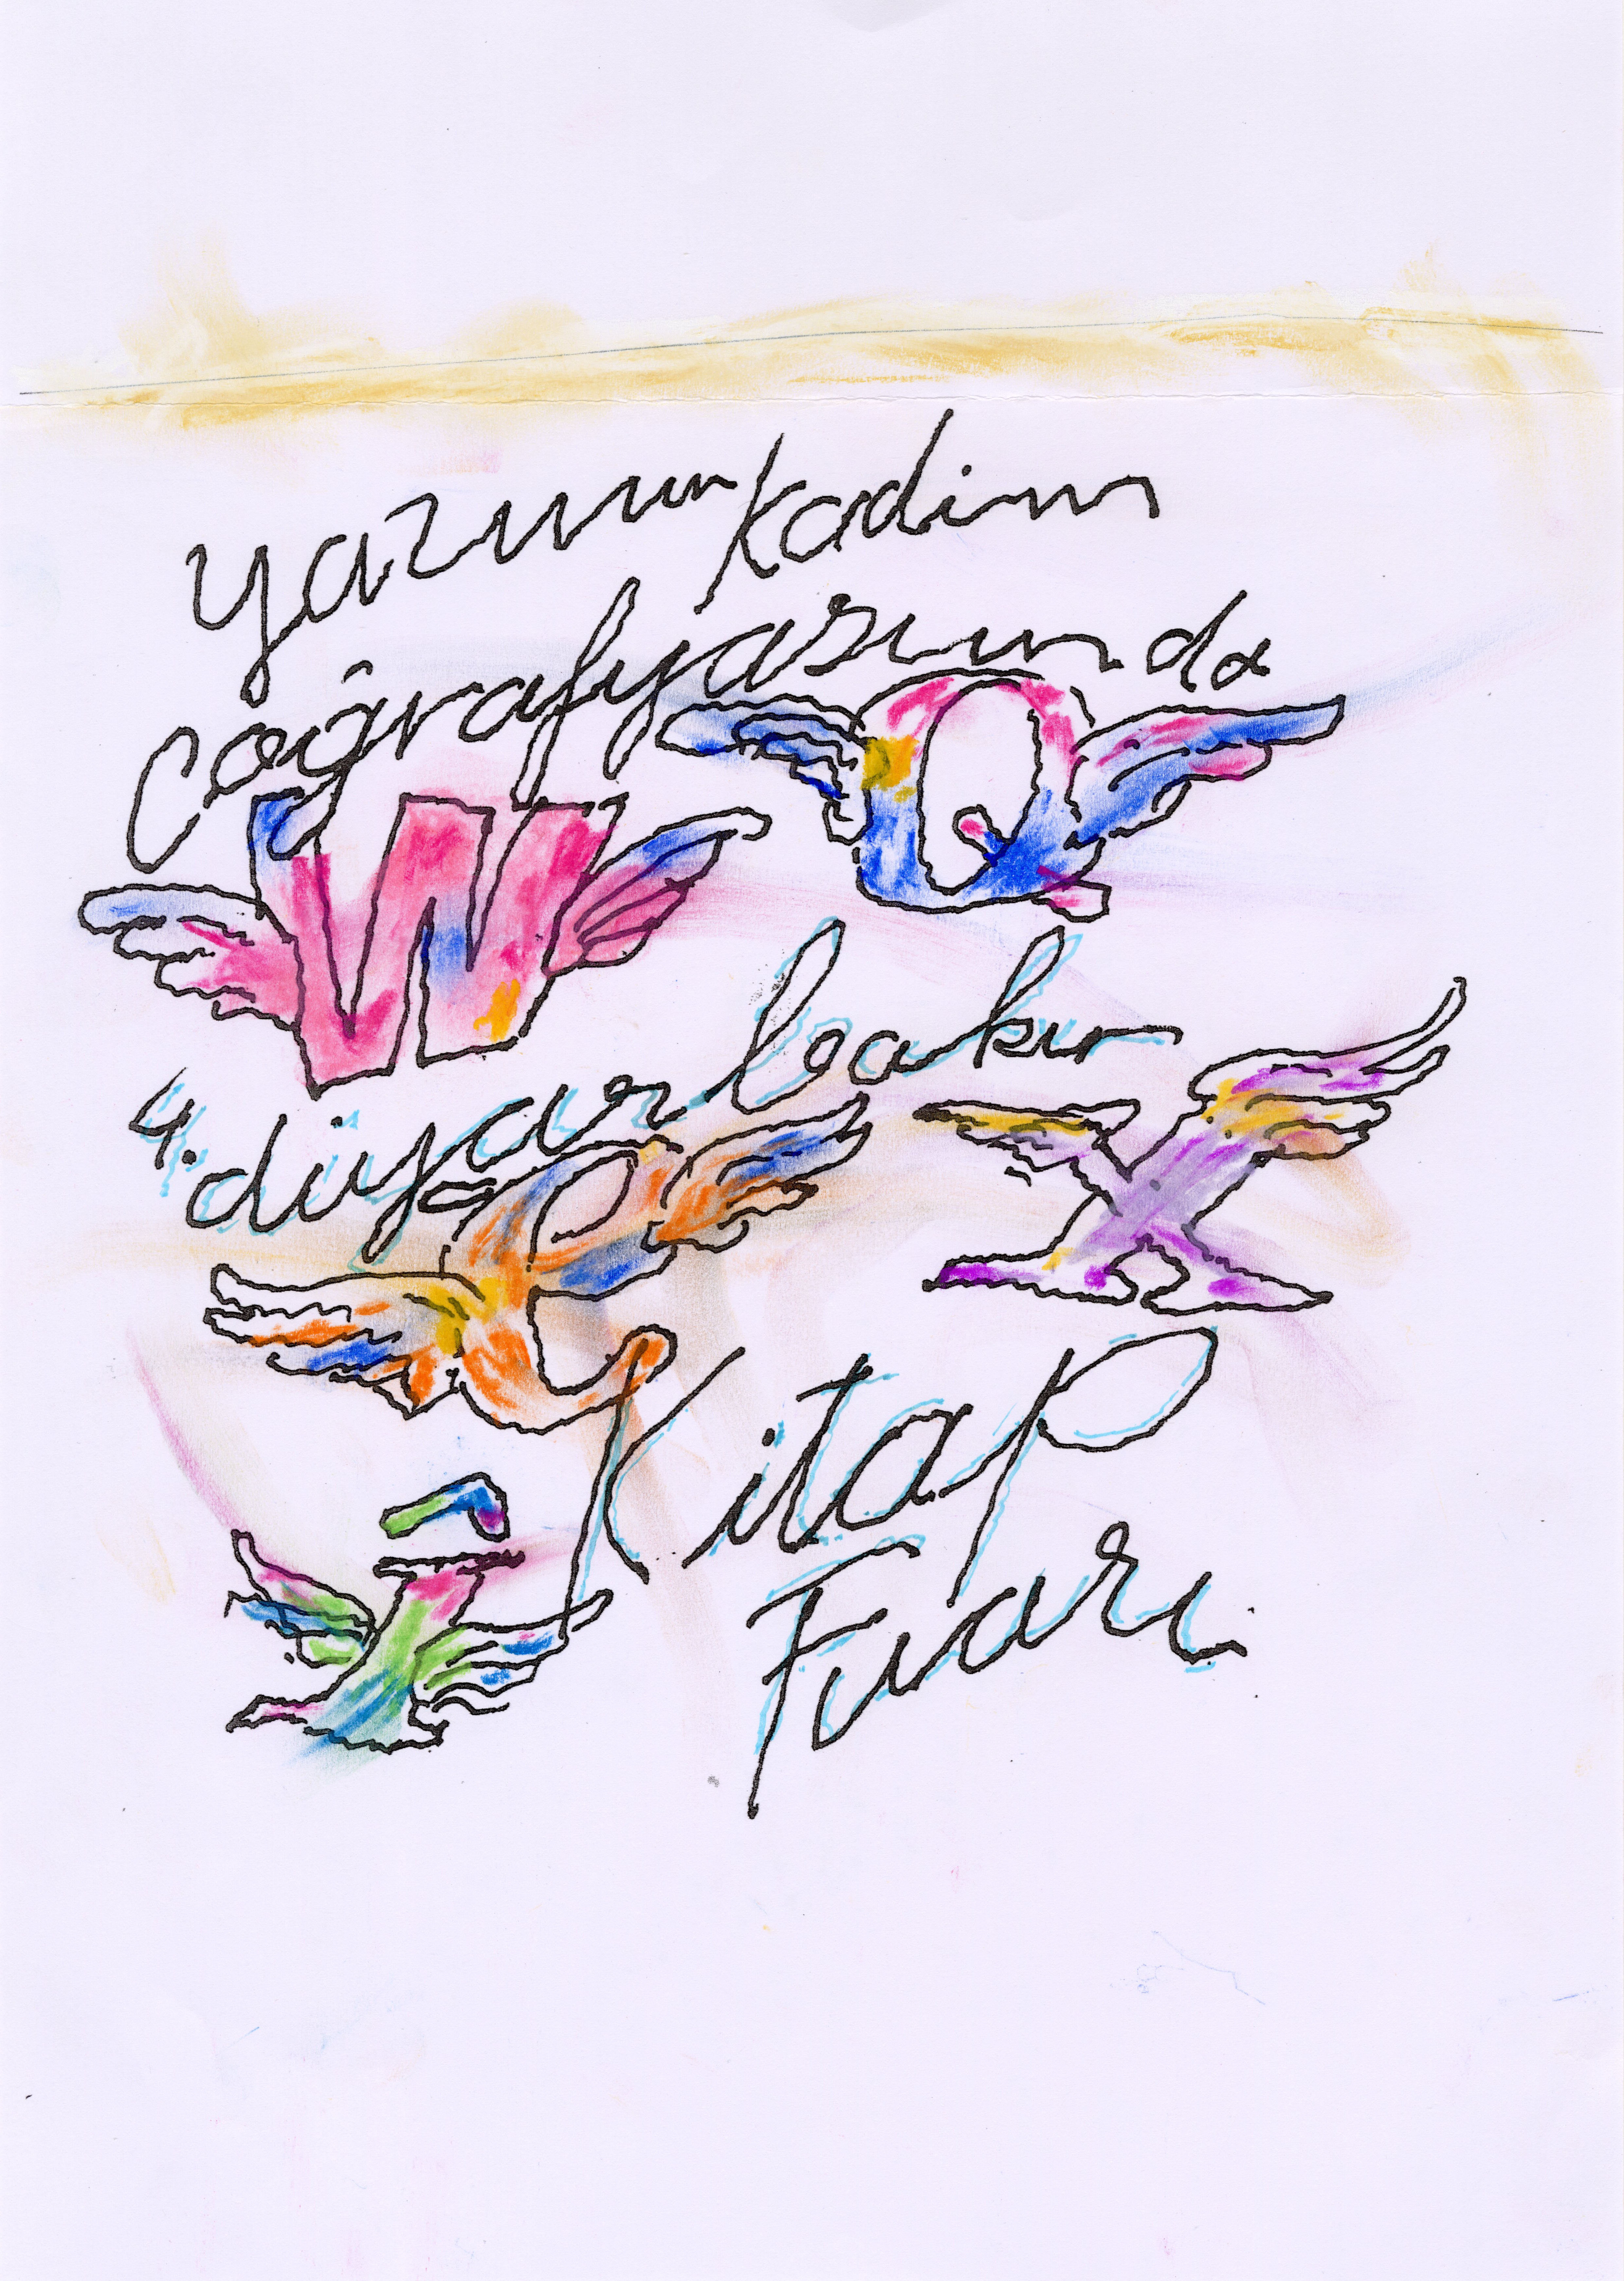 yazının kadim
coğrafyasında
Q
W
4. diyarbakır
X
Ê
Kitap
Î
Fuarı